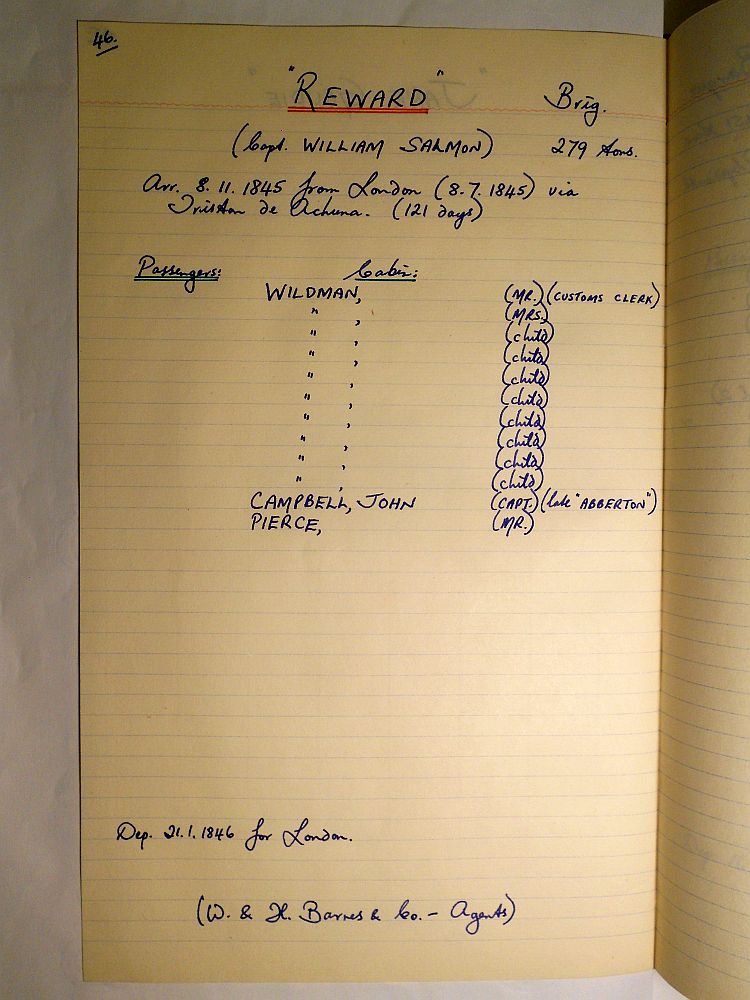 46.
"REWARD" Brig.
(Capt. WILLIAM SALMON) 279 tons.
Arr. 8.11.1845 from London (8.7.1845) via
Tristan de Achuna. (121 days)
Passengers: Cabin:
WILDMAN, (MR.) (CUSTOMS CLERK)
" , (MRS.)
" , (child)
" , (child)
" , (child)
" , (child)
" , (child)
" , (child)
" , (child)
" , (child)
CAMPBELL, JOHN (CAPT.) (late "ABBERTON")
PIERCE, (MR.)
Dep. 21.1.1846 for London.
(W. & H. Barnes & Co. - Agents)